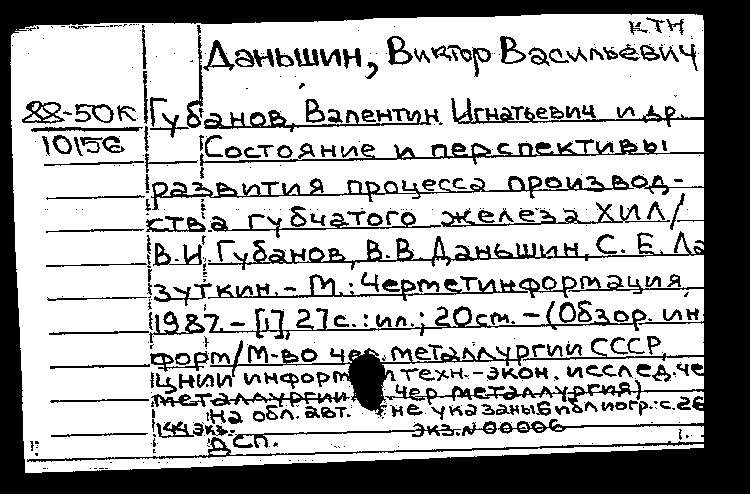 КТН
Даньшин, Виктор Васильевич
88-50К
10156
Губанов, Валентин Игнатьевич и др.
Состояние и перспективы
развития процесса производ-
ства губчатого железа ХИЛ/
В.И. Губанов, В.В. Даньшин, С. Е. Ла
зуткин. - М.: Черметинформация,
1987. - [1], 27 с. : ил.; 20 см. - (Обзор. ин
форм/М-во чер. металлургии СССР,
ЦНИИ информ и техн.-экон. исслед. че
металлургии чер металлургия)
На обл. авт. не указаны Библиогр.: с. 26
144 экз. экз. N 00006
ДСП.